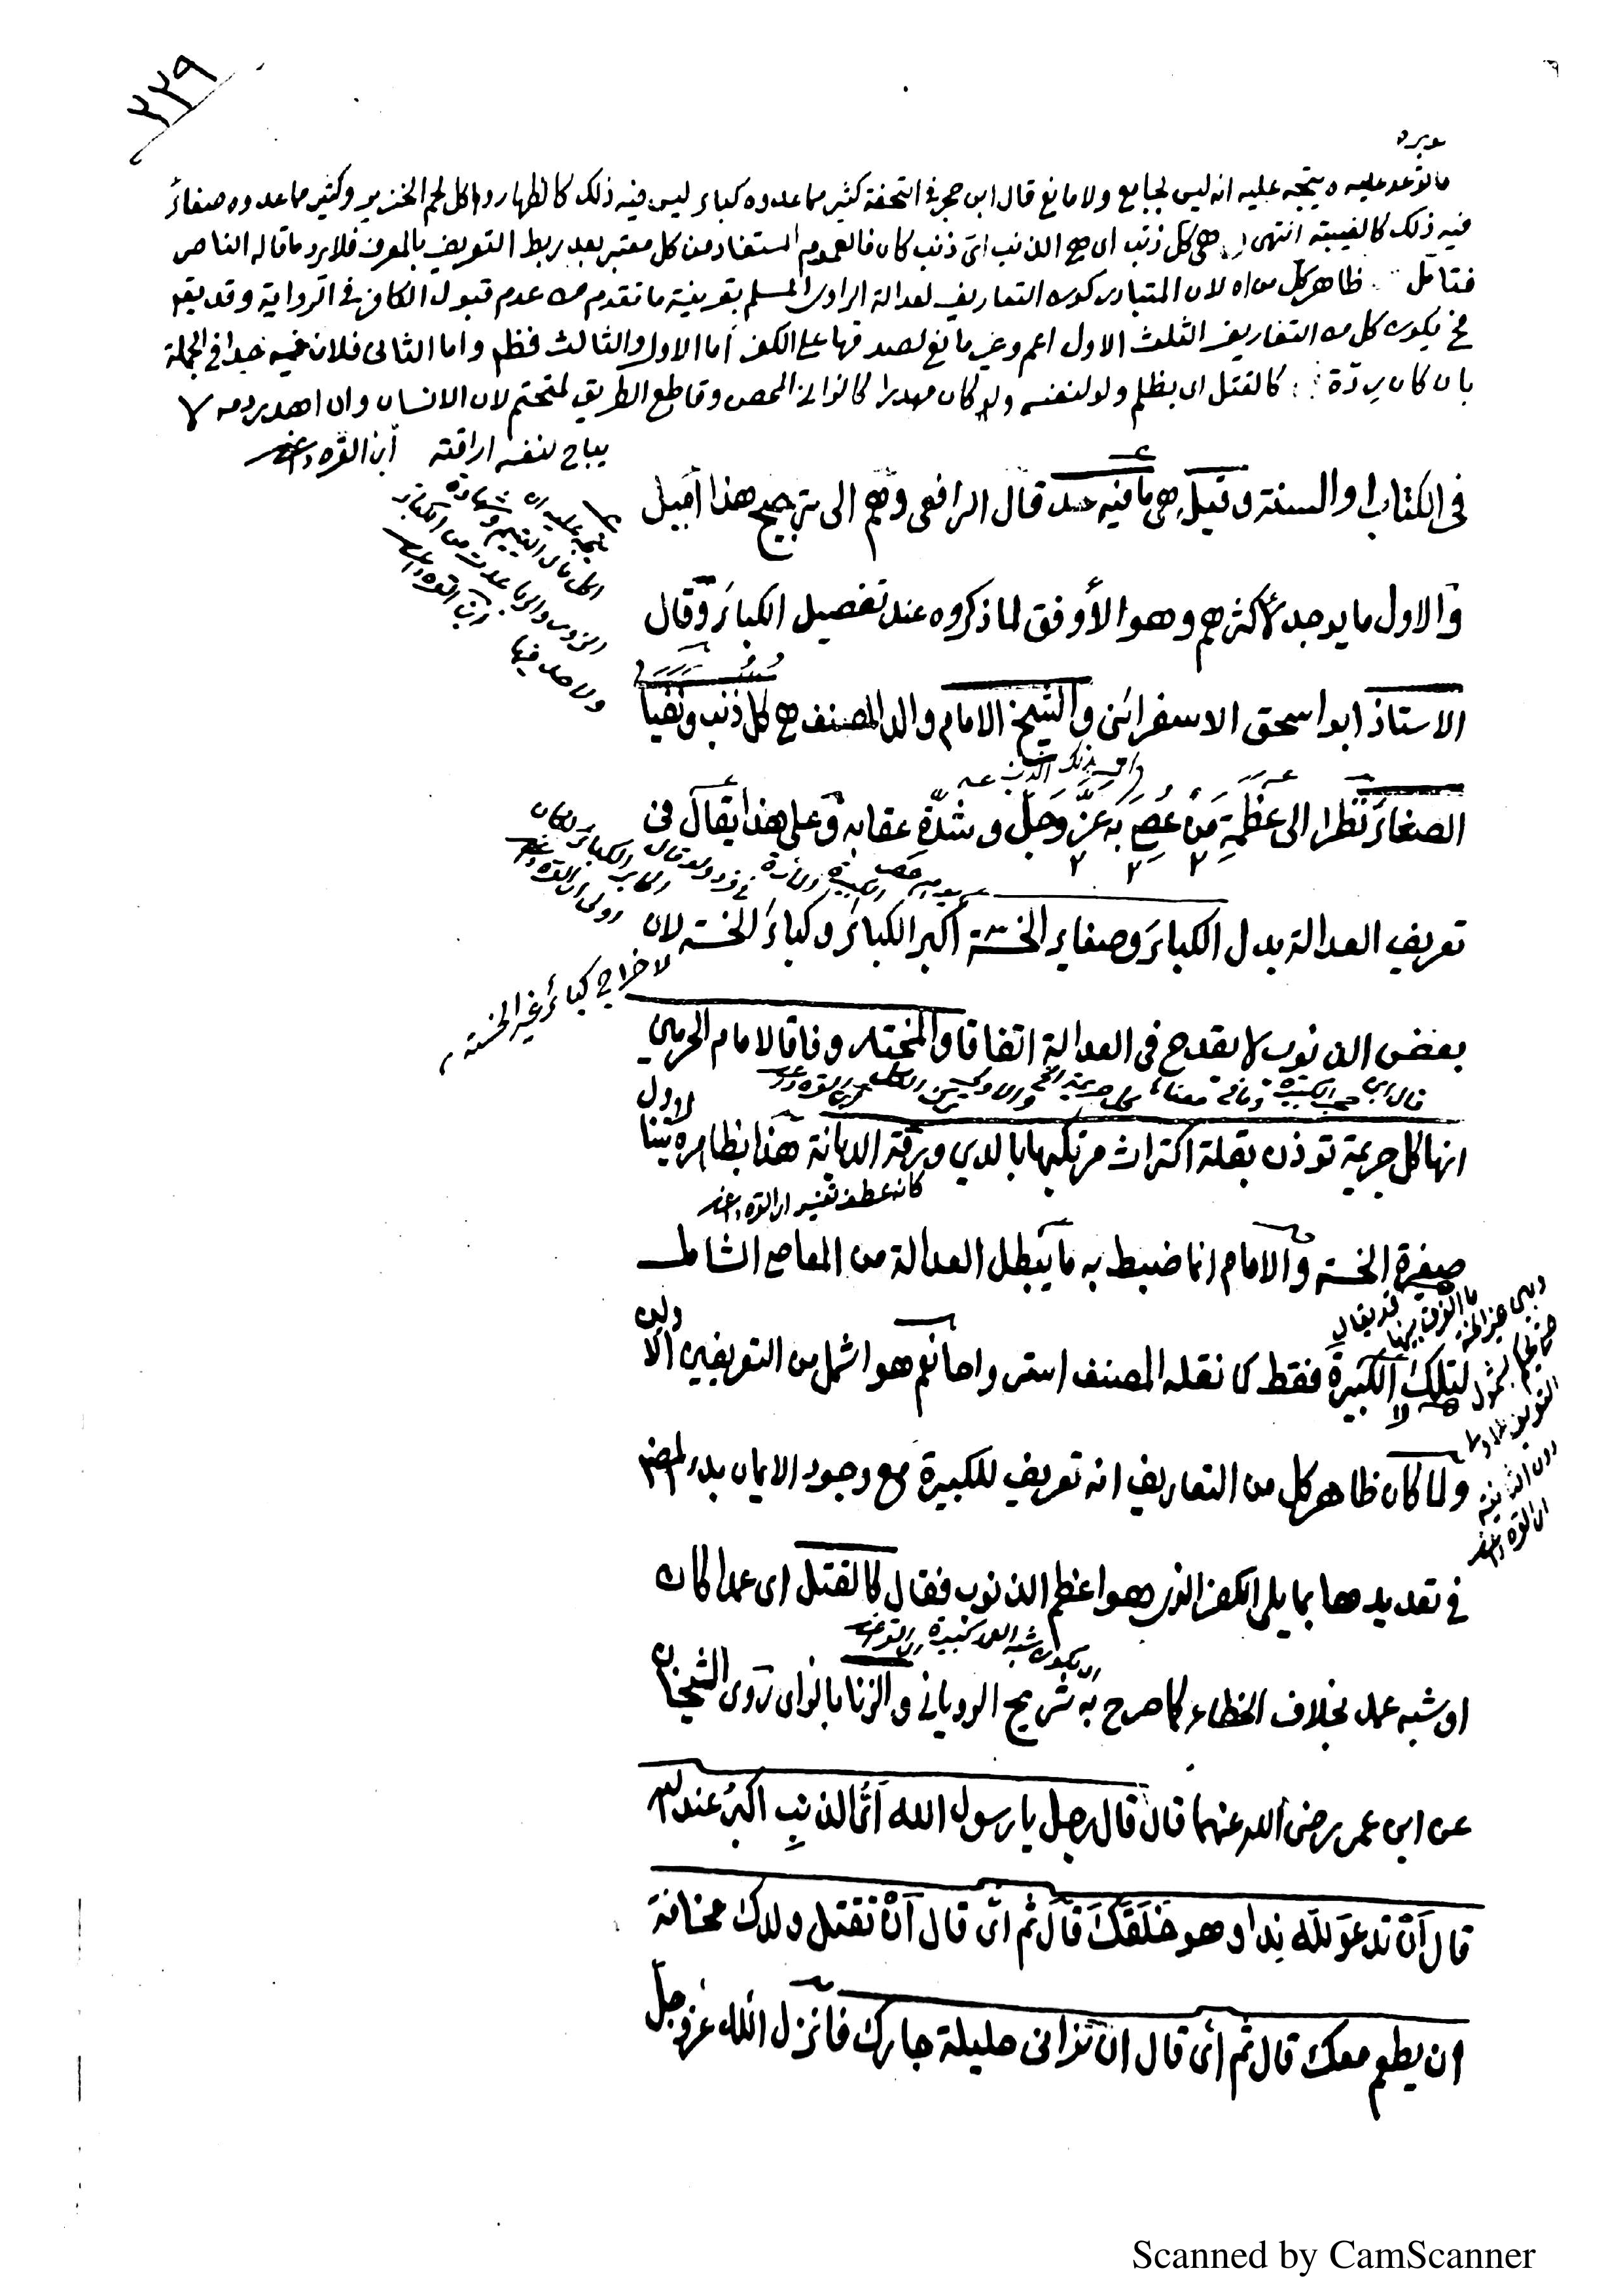 ٢٢٩
ما توعد عليه ه يتجه عليه انه ليس بجامع ولا مانع قال ابن حجر في التحفة كثير مما عدوه كبائر ليس فيه ذلك كالظهار واكل لحم الخنزير وكثير مما عدوه صغائر
فيه ذلك كالغيبة انتهى هي كل ذنب اي هي الذنب اي ذنب كان فالعموم المستفاد من كل معتبر بعد ربط التعريف بالمعرف فلا يرد ما قاله الناصر
فتامل ظاهر كل من اه لان المتبادر كون التعاريف لعدالة الراوى المسلم بقرينة ما تقدم من عدم قبول الكافر في الرواية وقد يقه
مخ يكون كل من التعاريف الثلث الاول اعم وغير مانع لصدقها على الكفر اما الاول والثالث فظهر واما الثانى فلان فيه حدا في الجملة
بان كان ردة كالقتل اى بظلم ولو لنفسه ولو كان مهدرا كالزانى المحصن وقاطع الطريق المتحتم لان الانسان وان اهدر دمه لا
يباح لنفسه اراقته ابن القره داغي
فى الكتاب او السنة وقيل هى ما فيه حد قال الرافعى وهم الى ترجيح هذا اميل
يتجه عليه ان
اكل مال اليتيم وشهادة
الزور والربا عدت من الكبائر
ولا حد فيها ابن القره داغي
والاول ما يوجد لأكثرهم وهو الأوفق لما ذكروه عند تفصيل الكبائر وقال
الاستاذ ابو اسحق الاسفرائنى والشيخ الامام والد المصنف هي كل ذنب ونفيا
الصغائر نظرا الى عظمة من عصي به عز وجل وشدة عقابه وعلى هذا يقال فى
تعريف العدالة بدل الكبائر وصغاير الخسة اكبر الكبائر وكبائر الخسة لان
لاخراج كبائر غير الخسة
بعض الذنوب لا يقدح فى العدالة اتفاقا والمختار وفاقا لامام الحرمين
انها كل جريمة توذن بقلة اكتراث مرتكبها بالدين ورقة الديانة هذا بظاهره يتناول
كانه عطف تفسير ابن القره داغي
صغيرة الخسة والامام انما ضبط به ما يبطل العدالة من المعاصي الشامل
لتلك لا الكبيرة فقط كما نقله المصنف استرواحا نعم هو اشمل من التعريفين الاولين
ولما كان ظاهر كل من التعاريف انه تعريف للكبيرة مع وجود الايمان بدء المصنف
فى تعديدها بما يلى الكفر الذى هو اعظم الذنوب فقال كالقتل اى عمدا كان
او شبه عمد بخلاف الخطاء كما صرح به شريح الرويانى والزنا بالزاى روى الشيخان
عن ابن عمر رضى الله عنهما قال قال رجل يا رسول الله اي الذنب اكبر عند الله
قال ان تدعو لله ندا وهو خلقك قال ثم اى قال ان تقتل ولدك مخافة
ان يطعم معك قال ثم اى قال ان تزانى حليلة جارك فانزل الله عز وجل
Scanned by CamScanner